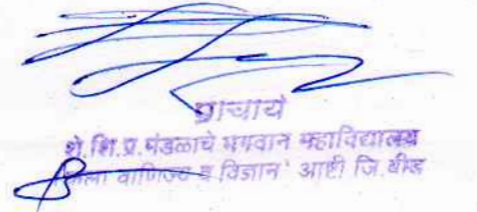 प्राचार्य
शे.शि.प्र.मंडळाचे भगवान महाविद्यालय
कला वाणिज्य व विज्ञान' आष्टी जि.बीड